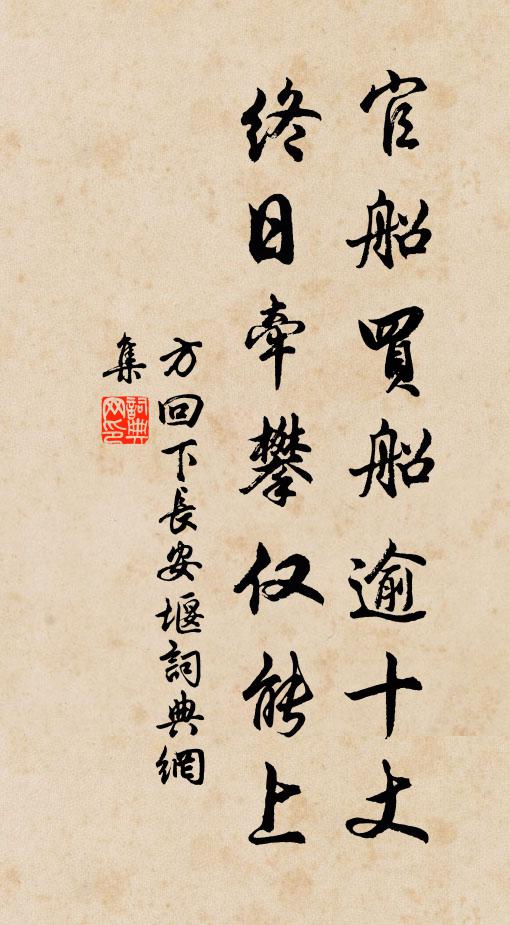 官船買船逾十丈
終日牽攀仅能上
方回下長安堰詞典網
集
詞典
网印